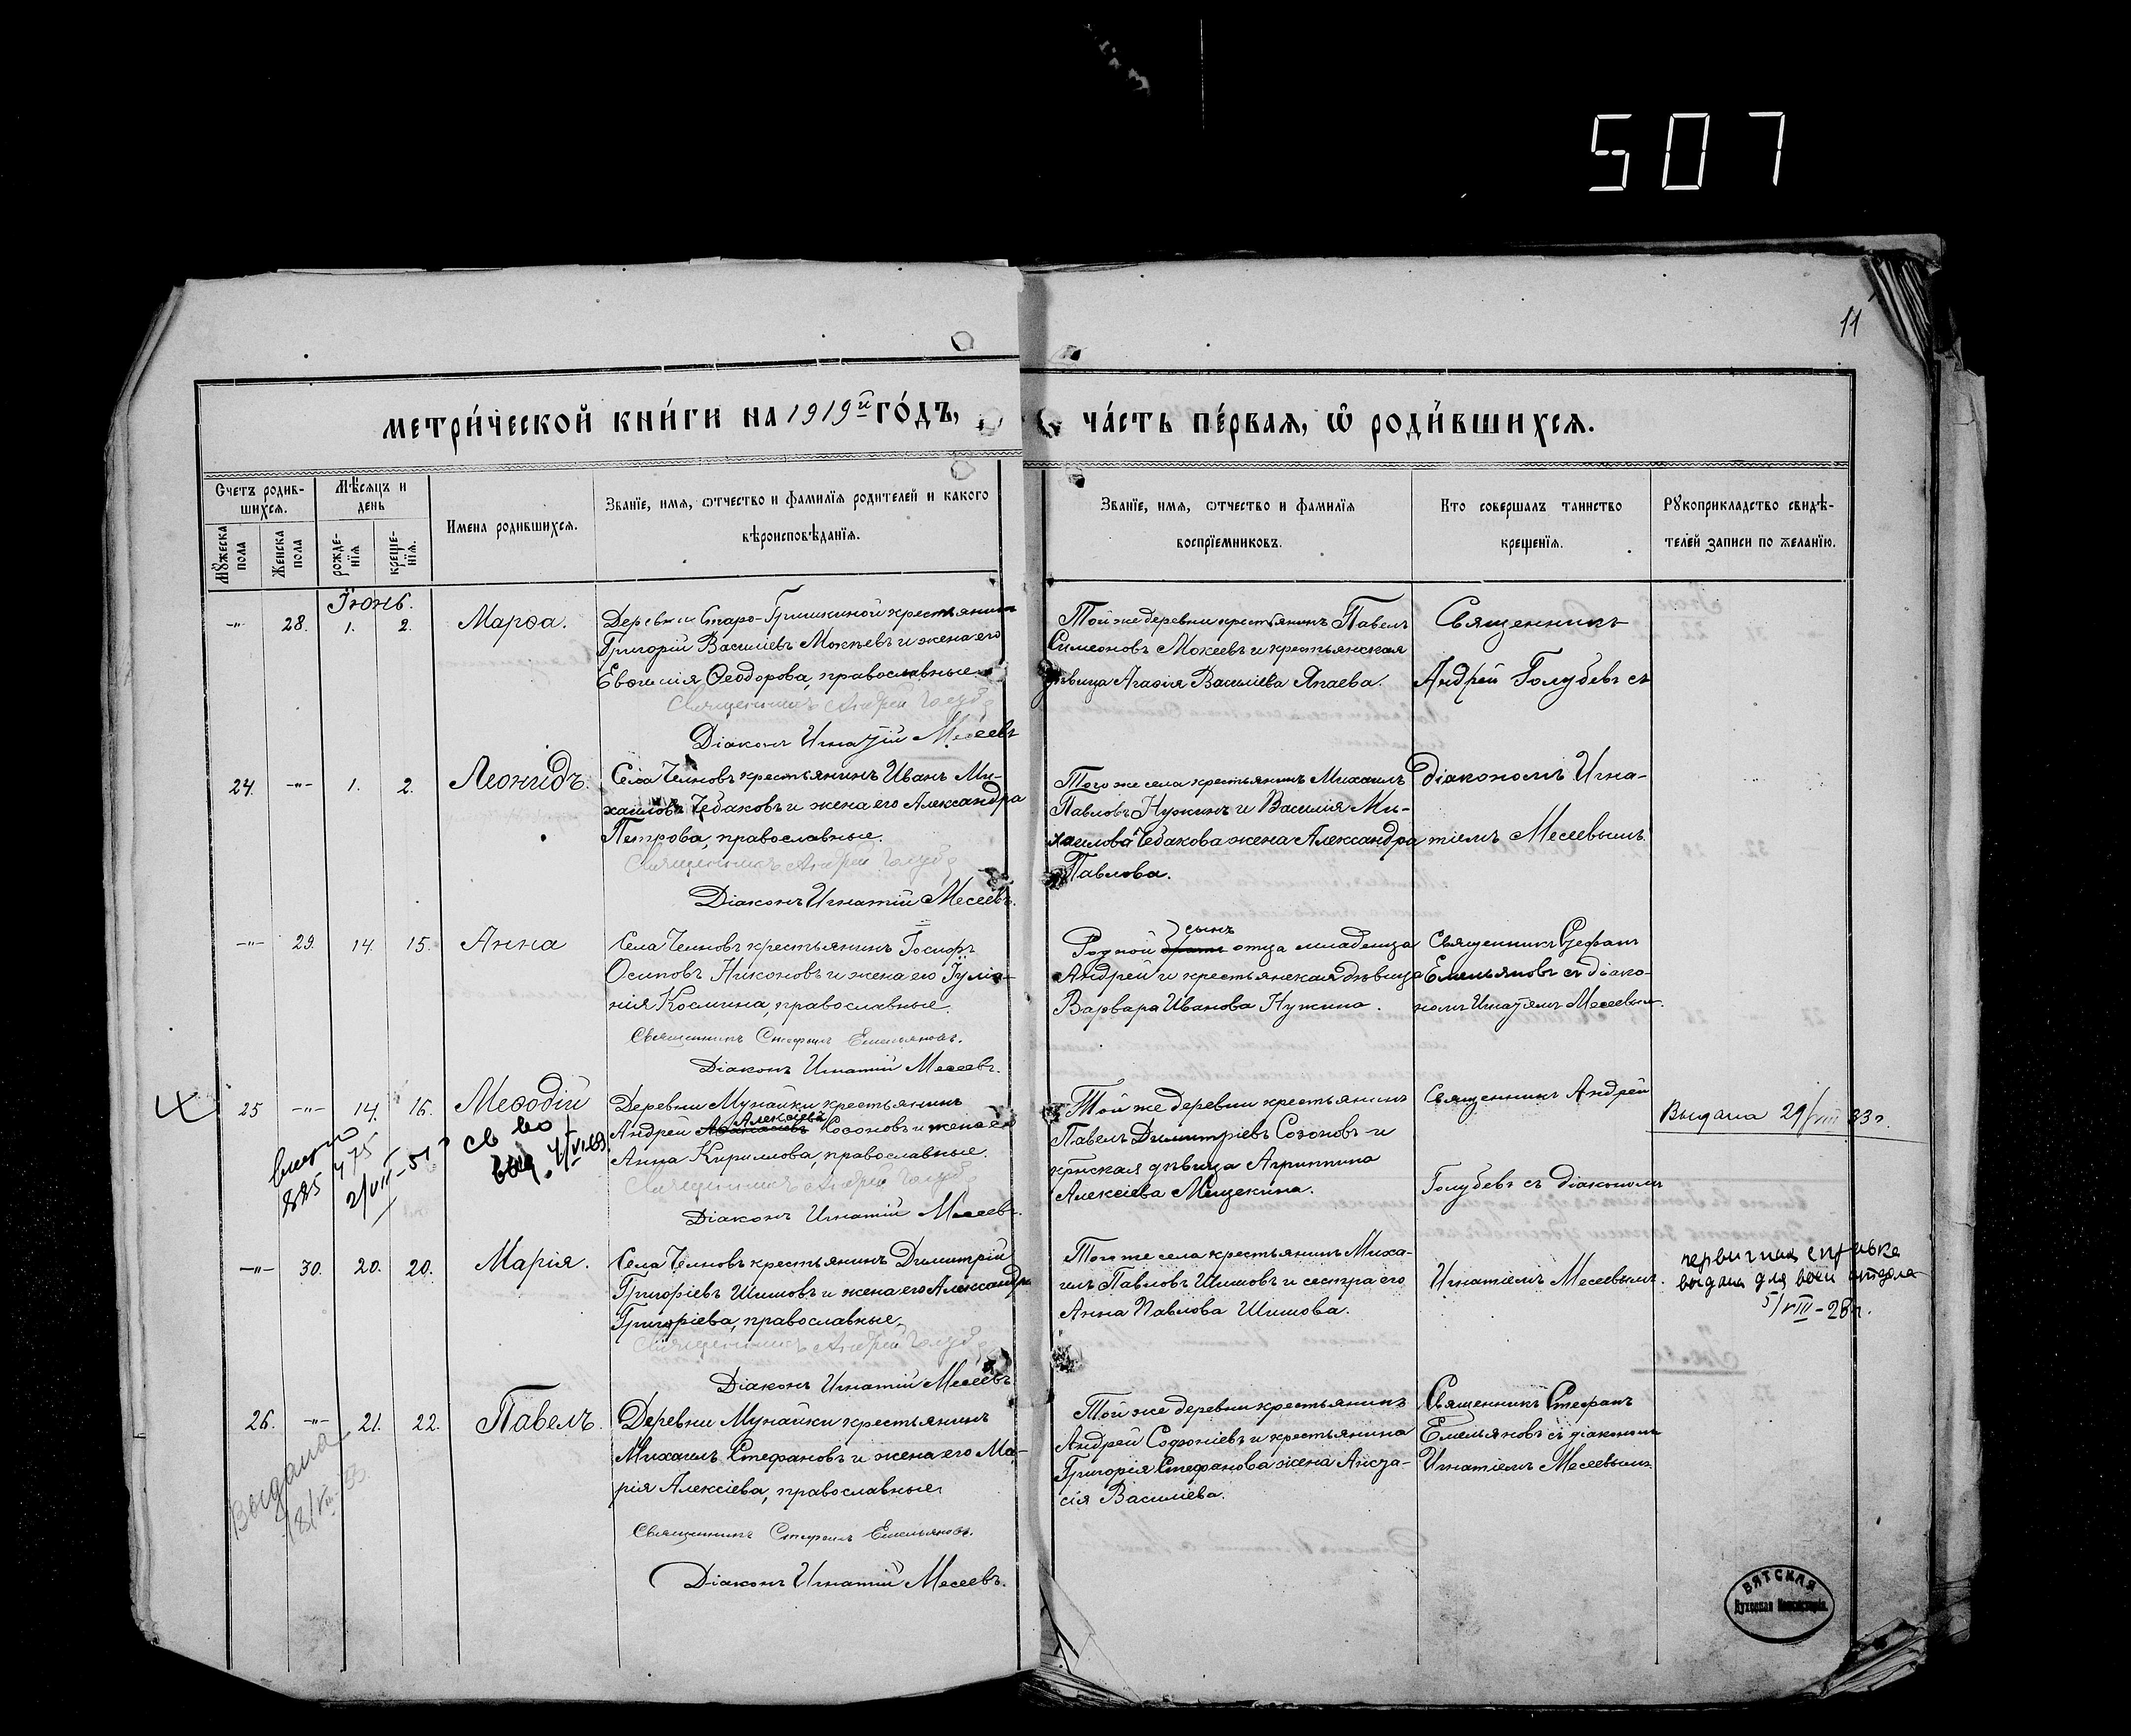 507
11
метри́ческой кни́ги на 1919й го́дъ,
ча́сть пе́рвая, ѿ роди́вшихся.
Счетъ родив-
шихся.
Мѣсяцъ и
день
Мꙋжеска
пола
Женска
пола
рожде-
нїя
креще-
нїя.
Имена родившихся.
Званїе, имя, ѡтчество и фамилїя родителей и какого
вѣроисповѣданїя.
Званїе, имя, ѡтчество и фамилїя
воспрїемниковъ.
Кто совершалъ таинство
крещенїя.
Рꙋкоприкладство свидѣ-
телей записи по желанїю.
Іюнь.
-"- 28. 1. 2. Марѳа.
Деревни Старо-Гришкиной крестьянинъ
Григорій Василіевъ Мокѣевъ и жена его
Евѳимія Ѳеодорова, православные
Священникъ Андрей Голуб
Діаконъ Игнатій Месеевъ
Той же деревни крестьянинъ Павелъ
Симеоновъ Мокеевъ и крестьянская
дѣвица Агаѳія Василіева Япаева.
Священникъ
Андрей Голубевъ съ
24. -"- 1. 2. Леонидъ.
Села Челновъ крестьянинъ Иванъ Ми-
хаиловъ Чебаковъ и жена его Александра
Петрова, православные.
Священникъ Андрей Голуб
Діаконъ Игнатій Месеевъ.
Того же села крестьянинъ Михаилъ
Павловъ Нужинъ и Василія Ми-
хаилова Чебакова жена Александра
Павлова.
діакономъ Игна-
тіемъ Месеевымъ.
-"- 29. 14. 15. Анна
Села Челновъ крестьянинъ Іосифъ
Осиповъ Никоновъ и жена его Іуліа-
нія Космина, православные.
Священникъ Стефанъ Емельяновъ.
Діаконъ Игнатій Месеевъ.
сынъ
Родной братъ отца младенца
Андрей и крестьянская дѣвица
Варвара Иванова Нужина.
Священникъ Стефанъ
Емельяновъ съ діако-
номъ Игнатіемъ Месеевым.
25 -"- 14. 16. Меѳодій
Деревни Мунайки крестьянинъ
Алексѣевъ
Андрей Созоновъ и жена его
Анна Кириллова, православные.
Священникъ Андрей Голуб
Діаконъ Игнатій Месеевъ.
Той же деревни крестьянинъ
Павелъ Димитріевъ Созоновъ и
крнская дѣвица Агриппина
Алексіева Мещекина.
Священникъ Андрей
Голубевъ съ діакономъ
Выдана 29/VIII 33г.
885 475
2/VII-51
св во
выд. 4/VI.69.
-"- 30. 20. 20. Марія.
Села Челновъ крестьянинъ Димитрій
Григоріевъ Шишовъ и жена его Александра
Григоріева, православные
Священникъ Андрей Голуб
Діаконъ Игнатій Месеевъ
Того же села крестьянинъ Миха-
илъ Павловъ Шишовъ и сестра его
Анна Павлова Шишова.
Игнатіемъ Месеевымъ.
первичная справка
выдана для воен отдела
5/VIII-28г.
26. -"- 21. 22. Павелъ.
Деревни Мунайки крестьянинъ
Михаилъ Стефановъ и жена его Ма-
рія Алексіева, православные
Священникъ Стефанъ Емельяновъ.
Діаконъ Игнатій Месеевъ.
Той же деревни крестьянинъ
Андрей Софоніевъ и крестьянина
Григорія Стефанова жена Анста-
сія Василіева.
Священникъ Стефанъ
Емельяновъ съ діакономъ
Игнатіемъ Месеевымъ.
Выдана
ВЯТСКАЯ
Духовная Консисторія.